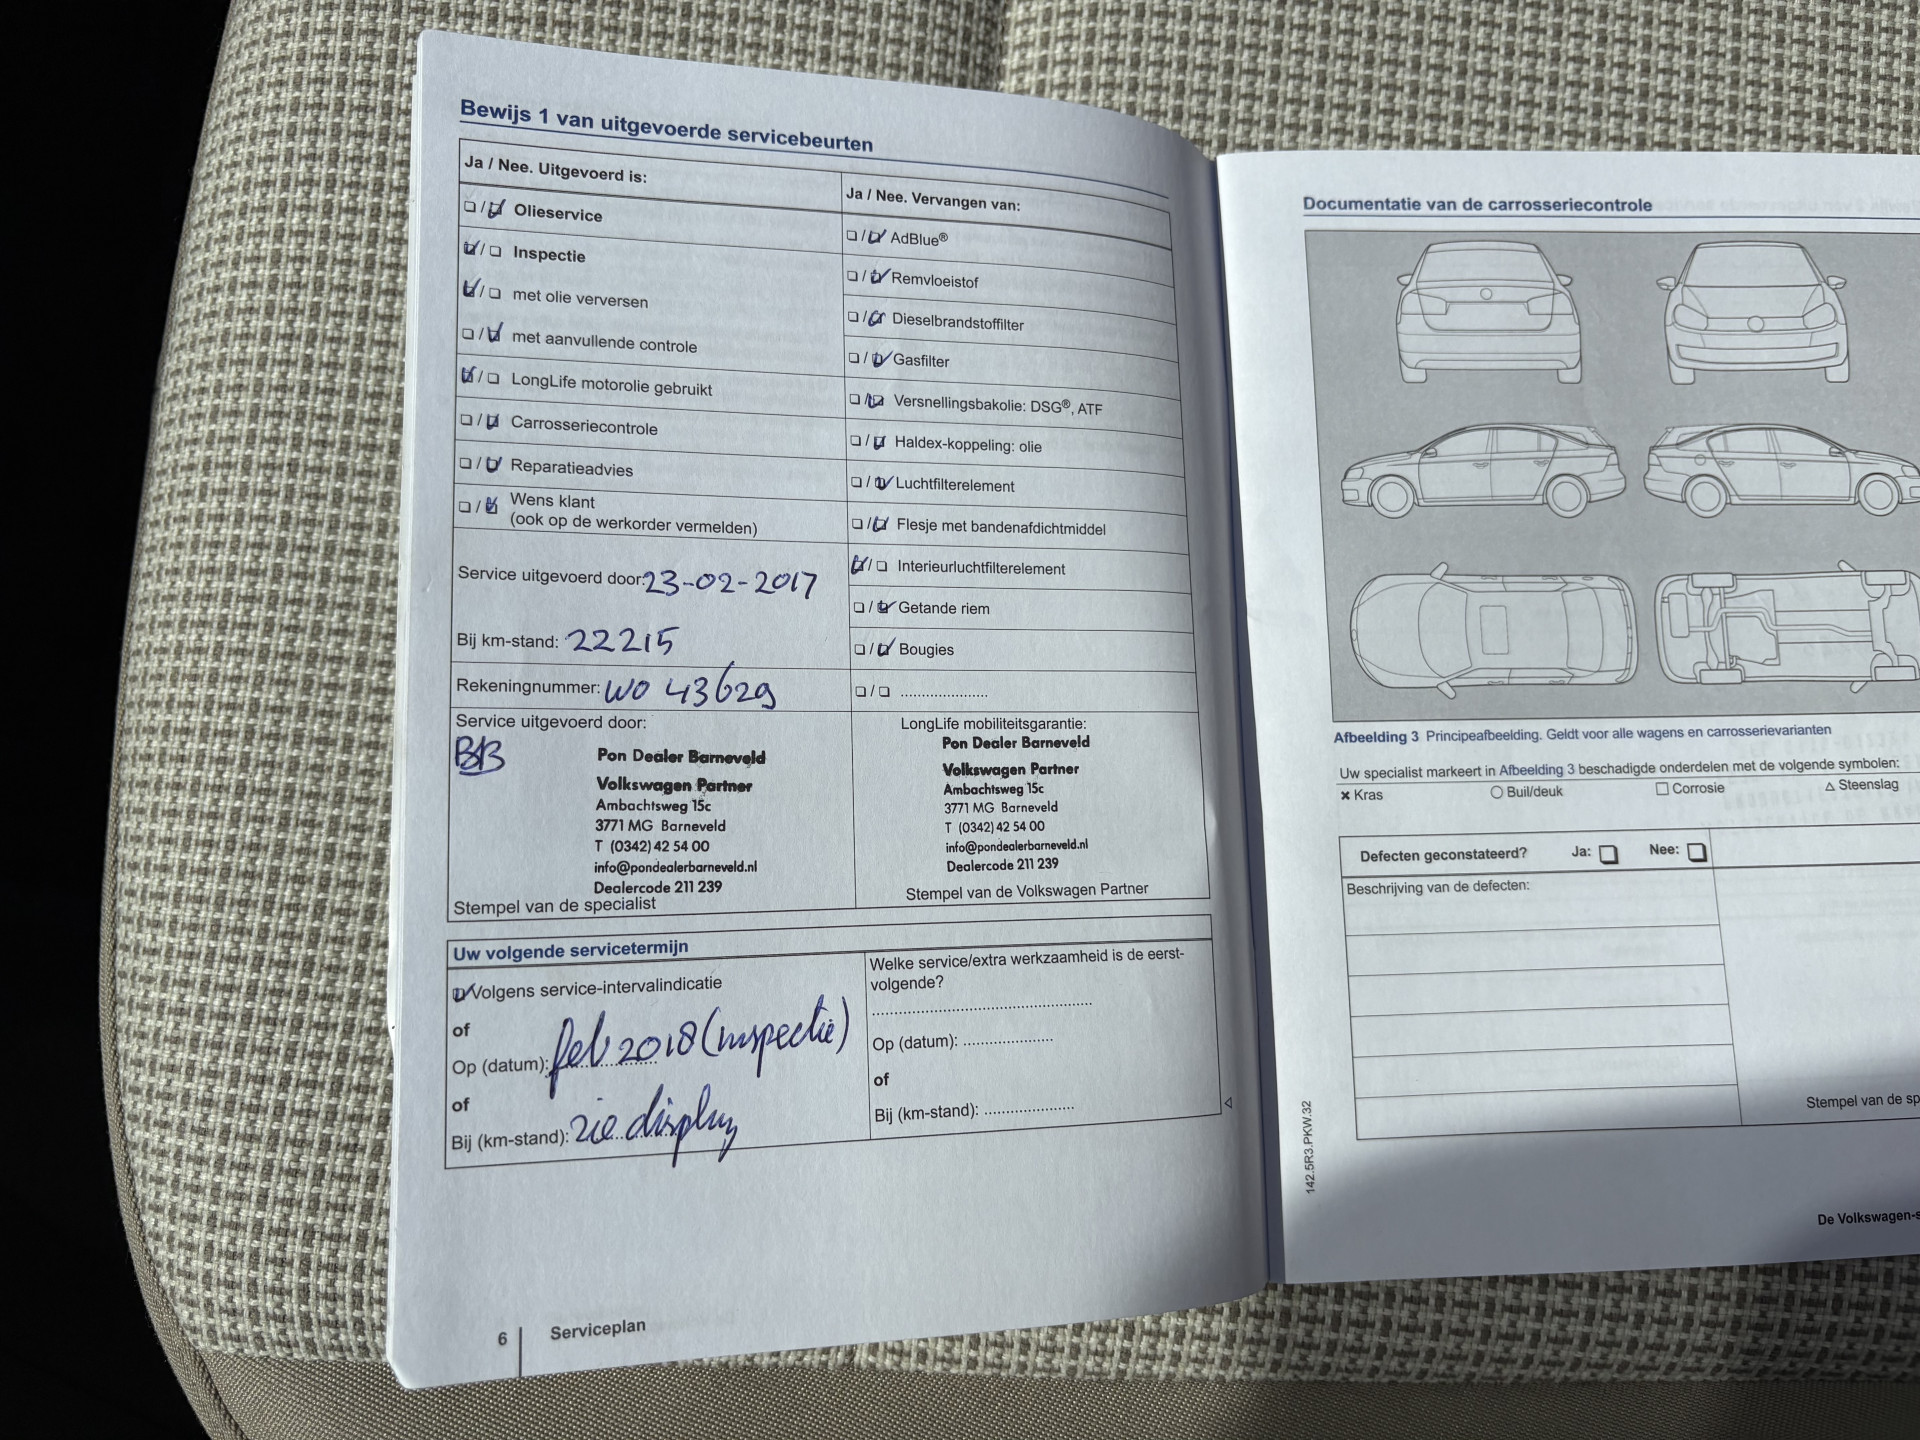 Bewijs 1 van uitgevoerde servicebeurten
Ja / Nee. Uitgevoerd is:
Olieservice
Inspectie
met olie verversen
met aanvullende controle
LongLife motorolie gebruikt
Carrosseriecontrole
Reparatieadvies
Wens klant
(ook op de werkorder vermelden)
Service uitgevoerd door: 23-02-2017
Bij km-stand: 22215
Rekeningnummer: WO 43629
Ja / Nee. Vervangen van:
AdBlue®
Remvloeistof
Dieselbrandstoffilter
Gasfilter
Versnellingsbakolie: DSG®, ATF
Haldex-koppeling: olie
Luchtfilterelement
Flesje met bandenafdichtmiddel
Interieurluchtfilterelement
Getande riem
Bougies
.....................
Service uitgevoerd door:
Pon Dealer Barneveld
Volkswagen Partner
Ambachtsweg 15c
3771 MG Barneveld
T (0342) 42 54 00
info@pondealerbarneveld.nl
Dealercode 211 239
Stempel van de specialist
LongLife mobiliteitsgarantie:
Pon Dealer Barneveld
Volkswagen Partner
Ambachtsweg 15c
3771 MG Barneveld
T (0342) 42 54 00
info@pondealerbarneveld.nl
Dealercode 211 239
Stempel van de Volkswagen Partner
Uw volgende servicetermijn
Volgens service-intervalindicatie
of
Op (datum): feb 2018 (inspectie)
of
Bij (km-stand): zie display
Welke service/extra werkzaamheid is de eerst-
volgende?
.............................................
Op (datum): ...................
of
Bij (km-stand): ...................
6 Serviceplan
Documentatie van de carrosseriecontrole
Afbeelding 3 Principeafbeelding. Geldt voor alle wagens en carrosserievarianten
Uw specialist markeert in Afbeelding 3 beschadigde onderdelen met de volgende symbolen:
Kras
Buil/deuk
Corrosie
Steenslag
Defecten geconstateerd? Ja: Nee:
Beschrijving van de defecten:
Stempel van de sp
142.5R3.PKW.32
De Volkswagen-s